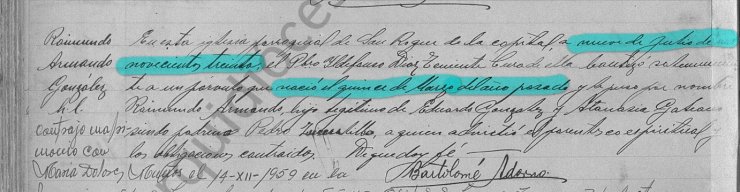 Raimundo
Armando
González
h.l.
contrajo matri
monio con
Maria Dolores el 14-XII-1959 en la
En esta iglesia parroquial de San Roque de la capital a nueve de Julio de mil
novecientos treinta, el Pbro Ildefonso Díaz Teniente Cura de ella bautizó solemnemen
te a un párvulo que nació el quince de Marzo del año pasado y le puso por nombre
Raimundo Armando, hijo legítimo de Eduardo González y Atanasia
siendo padrino Pedro a quien advertió el parentesco espiritual y
las obligaciones contraidas. De que doy fé
Bartolomé Adorno